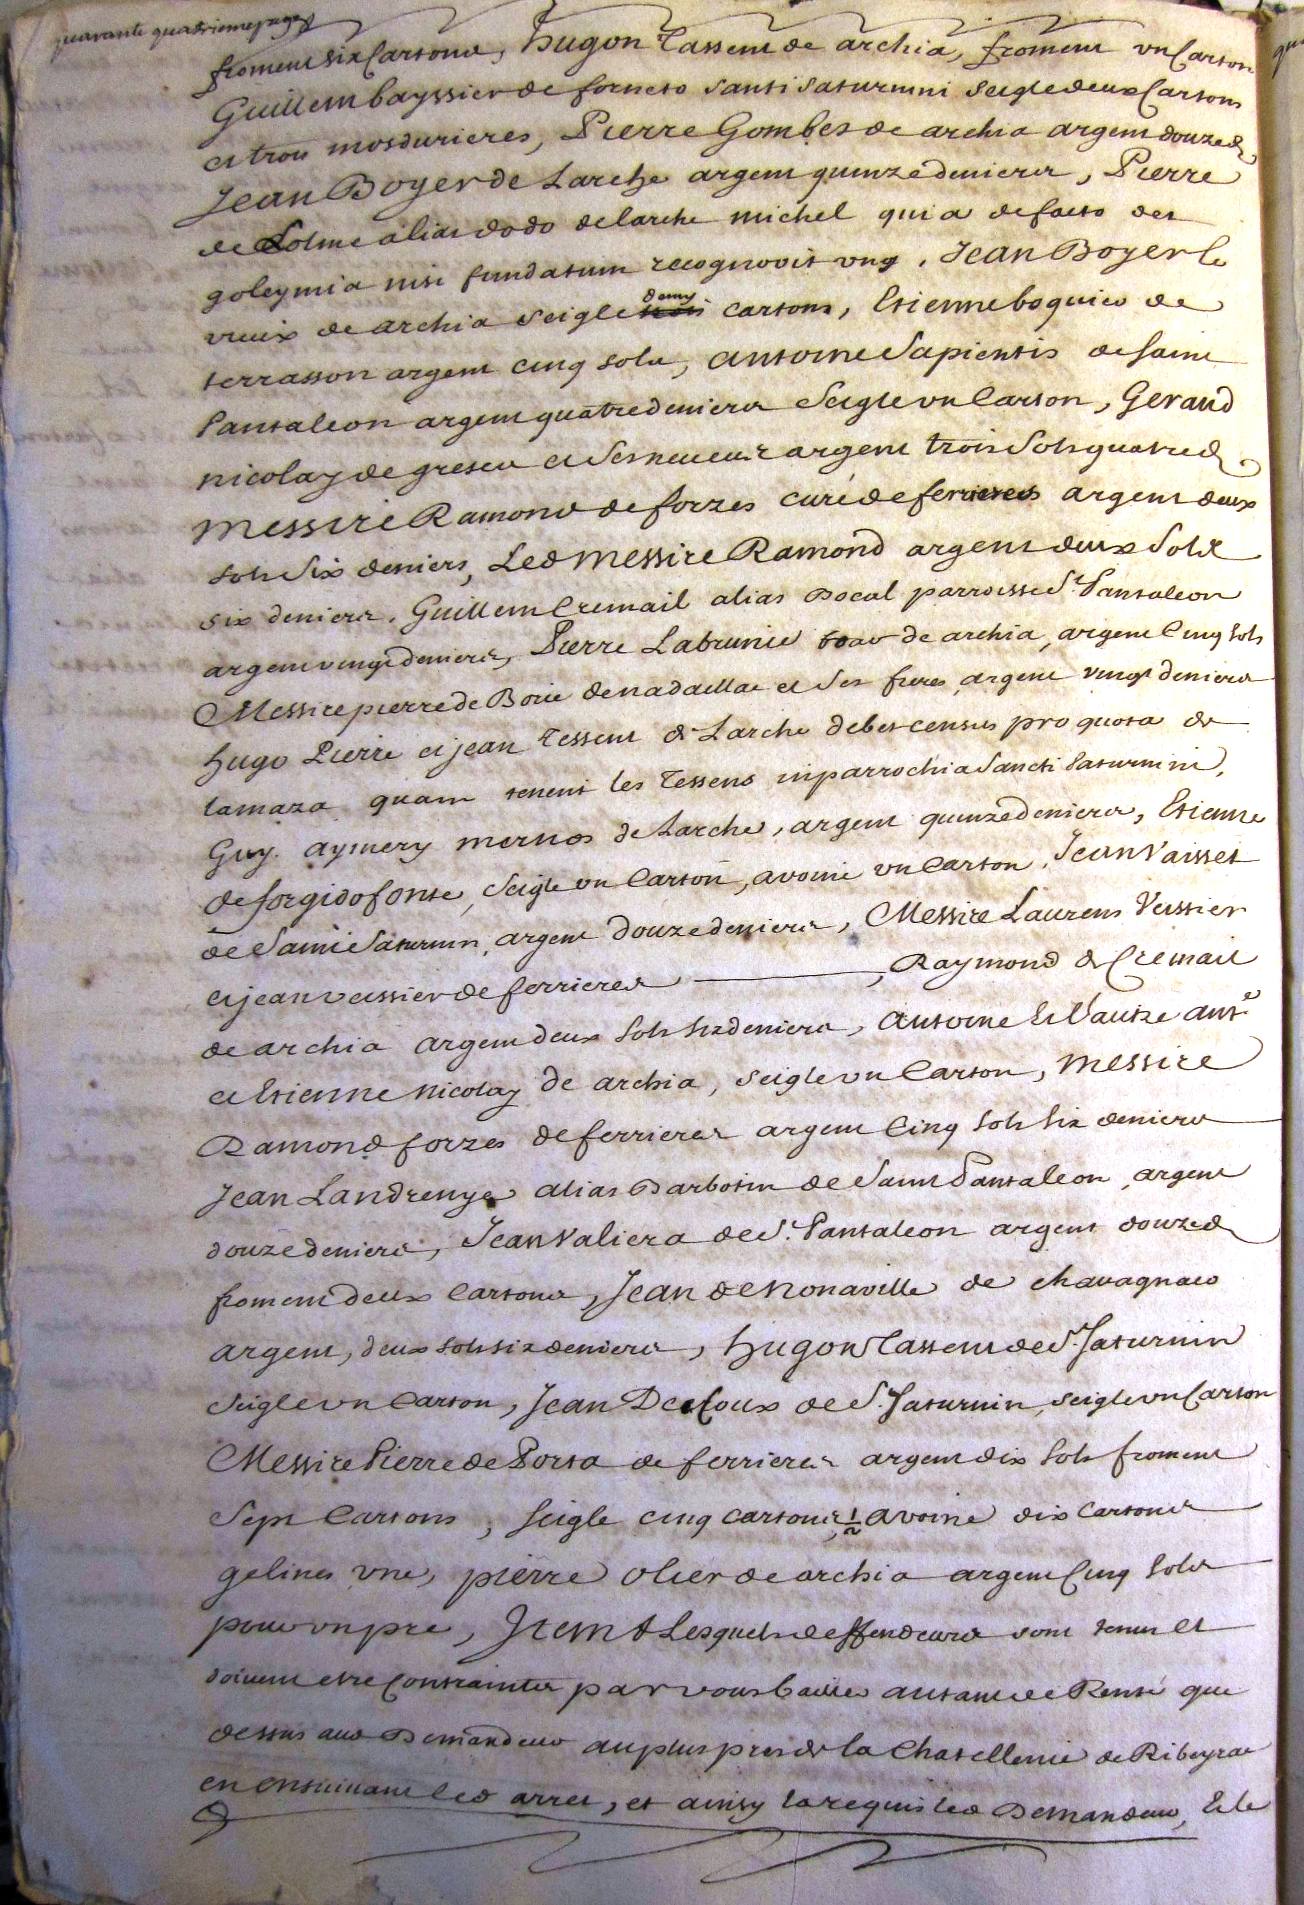 quarante quatriemepage
froment six Cartons, hugon Tassent de archia, froment vn Carton
Guillem bayssier de forneto Santi Saturnini Seigle deux Cartons
et trois mosdurieres, Pierre Gombes de archia argent douze d
Jean Boyer de Larche argent quinze deniers, Pierre
de Lolme alias dodo de larche michel quia de facto det
goleymia nisi fundatum recognovit vng, Jean Boyer le
vieux de archia Seigle demy cartons, Etienne boquier de
terrasson argent cinq sols, antoine Sapientis de Saint
Pantaleon argent quatre deniers Seigle vn Carton, Geraud
nicolay de greseu et Ses neveux argent trois Sols quatre d
Messire Ramond de forzes curé de ferrieres argent deux
sols Six deniers, Led Messire Ramond argent deux Sols
six deniers, Guillem Cremail alias Docal parroisse St Pantaleon
argent vingt deniers, Pierre Labrunie de archia, argent Cinq sols
Messire pierre de Borie de nadaillac et Ses freres argent vingt deniers
hugo Pierre et jean Tessent de Larche debet census pro quota de
lamaza quam tenent les Tessens in parrochia Sancti Saturnini,
Guy aymery mornos de Larche, argent quinze deniers, Etienne
de forgidofonte, Seigle vn Carton, avoine vn Carton, Jean Vaisset
de Saint Saturnin, argent douze deniers, Messire Laurens Veissier
et jean veissier de ferrieres ———, Raymond de Cremail
de archia argent deux Sols six deniers, antoine de Vautre ante
et Etienne nicolay de archia, seigle vn Carton, Messire
Ramond forzes de ferrieres argent Cinq Sols Six deniers
Jean Landrenye alias Barbotin de Saint Pantaleon argent
douze deniers, Jean Valiera de St. Pantaleon argent douze d
froment deux Cartons, Jean de Nonaville de chavagnac
argent, deux sols six deniers, hugon Tassent de St. Saturnin
Seigle vn Carton, Jean Descoux de St. Saturnin, seigle vn Carton
Messire Pierre de Porta de ferrieres argent dix Sols froment
Sept Cartons, Seigle cinq cartons 1/2 avoine dix Cartons
gelines vne, pierre Olier de archia argent Cinq Sols
pour vn pre, Item Lesquels deffendeurs sont tenus et
doivent etre Contraints par vous bailler autant de Rente que
dessus aud Demandeur au plus pres de la Chatellenie de Ribeyrac
en ensuivant led arret, et ainsy la requis led Demandeur, Et le